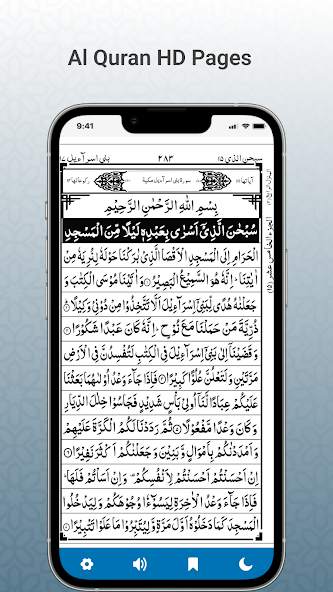 Al Quran HD Pages
9:41
بنی اسرآءیل ١٧ ٢٨٣ سبحن الذی ١٥
بِسْمِ اللّٰهِ الرَّحْمٰنِ الرَّحِيْمِ
سُبْحٰنَ الَّذِيْٓ اَسْرٰى بِعَبْدِهٖ لَيْلًا مِّنَ الْمَسْجِدِ
الْحَرَامِ اِلَى الْمَسْجِدِ الْاَقْصَا الَّذِيْ بٰرَكْنَا حَوْلَهٗ لِنُرِيَهٗ مِنْ
اٰيٰتِنَا ؕ اِنَّهٗ هُوَ السَّمِيْعُ الْبَصِيْرُ ۝ وَاٰتَيْنَا مُوْسَى الْكِتٰبَ وَ
جَعَلْنٰهُ هُدًى لِّبَنِيْٓ اِسْرَآءِيْلَ اَلَّا تَتَّخِذُوْا مِنْ دُوْنِيْ وَكِيْلًا ۝
ذُرِّيَّةَ مَنْ حَمَلْنَا مَعَ نُوْحٍ ؕ اِنَّهٗ كَانَ عَبْدًا شَكُوْرًا ۝
وَقَضَيْنَآ اِلٰى بَنِيْٓ اِسْرَآءِيْلَ فِي الْكِتٰبِ لَتُفْسِدُنَّ فِي الْاَرْضِ
مَرَّتَيْنِ وَلَتَعْلُنَّ عُلُوًّا كَبِيْرًا ۝ فَاِذَا جَآءَ وَعْدُ اُوْلٰىهُمَا بَعَثْنَا
عَلَيْكُمْ عِبَادًا لَّنَآ اُولِيْ بَاْسٍ شَدِيْدٍ فَجَاسُوْا خِلٰلَ الدِّيَارِ ؕ
وَكَانَ وَعْدًا مَّفْعُوْلًا ۝ ثُمَّ رَدَدْنَا لَكُمُ الْكَرَّةَ عَلَيْهِمْ
وَاَمْدَدْنٰكُمْ بِاَمْوَالٍ وَّبَنِيْنَ وَجَعَلْنٰكُمْ اَكْثَرَ نَفِيْرًا ۝
اِنْ اَحْسَنْتُمْ اَحْسَنْتُمْ لِاَنْفُسِكُمْ ۟ وَاِنْ اَسَاْتُمْ فَلَهَا ؕ
فَاِذَا جَآءَ وَعْدُ الْاٰخِرَةِ لِيَسُوْٓءٗا وُجُوْهَكُمْ وَلِيَدْخُلُوا
الْمَسْجِدَ كَمَا دَخَلُوْهُ اَوَّلَ مَرَّةٍ وَّلِيُتَبِّرُوْا مَا عَلَوْا تَتْبِيْرًا ۝